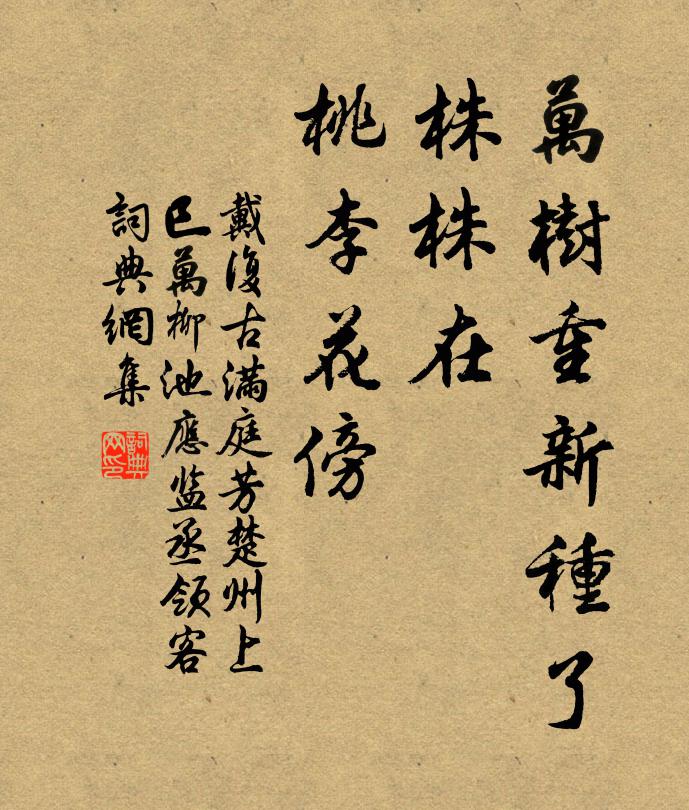 萬樹重新種了
株株在
桃李花傍
戴復古滿庭芳楚州上
巳萬柳池應监丞領客
詞典網集
詞典網印